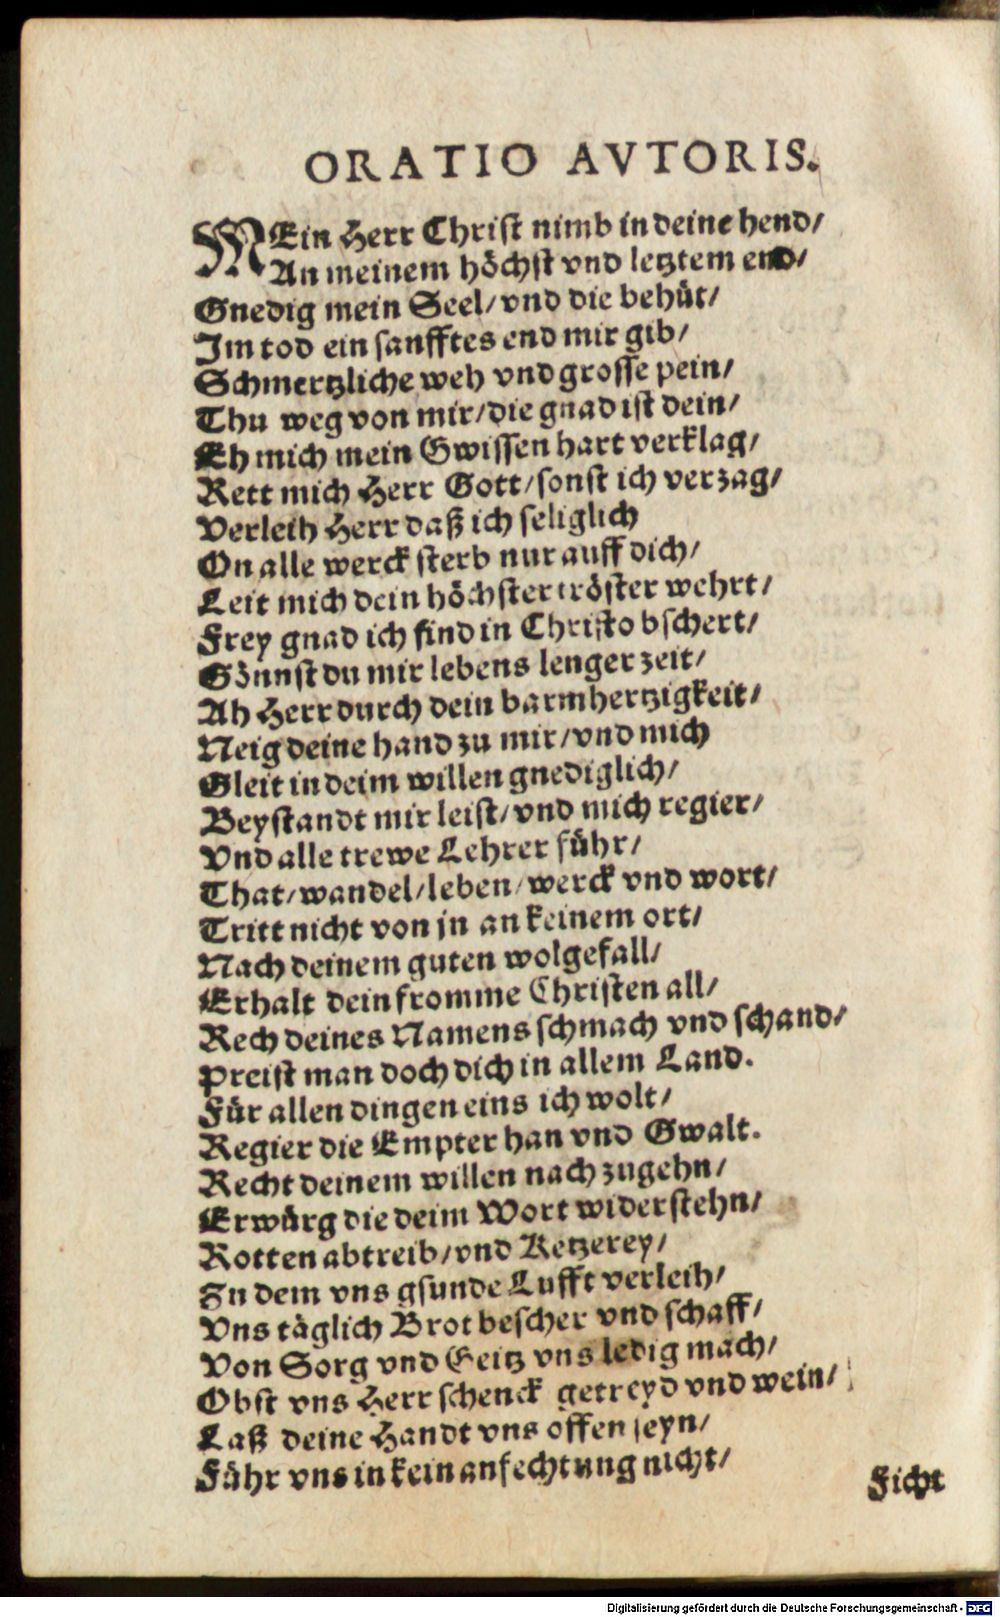 ORATIO AVTORIS.
MEin Herr Christ nimb in deine hend/
An meinem höchst vnd letztem end/
Gnedig mein Seel/ vnd die behüt/
Im tod ein sanfftes end mir gib/
Schmertzliche weh vnd grosse pein/
Thu weg von mir/ die gnad ist dein/
Eh mich mein Gwissen hart verklag/
Rett mich Herr Gott/ sonst ich verzag/
Verleih Herr daß ich seliglich
On alle werck sterb nur auff dich/
Leit mich dein höchster tröster wehrt/
Frey gnad ich find in Christo bschert/
Gönnst du mir lebens lenger zeit/
Ah Herr durch dein barmhertzigkeit/
Neig deine hand zu mir/ vnd mich
Gleit in deim willen gnediglich/
Beystandt mir leist/ vnd mich regier/
Vnd alle trewe Lehrer führ/
That/ wandel/ leben/ werck vnd wort/
Tritt nicht von jn an keinem ort/
Nach deinem guten wolgefall/
Erhalt dein fromme Christen all/
Rech deines Namens schmach vnd schand/
Preist man doch dich in allem Land.
Für allen dingen eins ich wolt/
Regier die Empter han vnd Gwalt.
Recht deinem willen nach zugehn/
Erwürg die deim Wort widerstehn/
Rotten abtreib/ vnd Ketzerey/
Zu dem vns gsunde Lufft verleih/
Vns täglich Brot bescher vnd schaff/
Von Sorg vnd Geitz vns ledig mach/
Obst vns Herr schenck getreyd vnd wein/
Laß deine Handt vns offen seyn/
Führ vns in kein anfechtung nicht/
Ficht
Digitalisierung gefördert durch die Deutsche Forschungsgemeinschaft - DFG